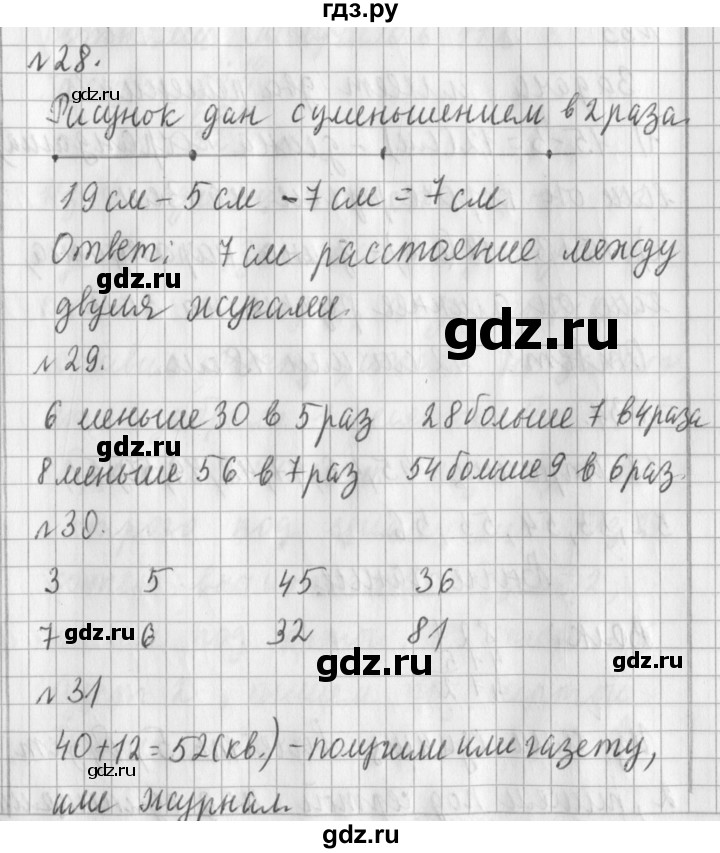 гдз.ру
№28.
gdz.ru
Рисунок дан с уменьшением в 2 раза.
19 см - 5 см - 7 см = 7 см
Ответ: 7 см расстояние между
gdz.ru
двумя жуками.
gdz.ru
№29.
6 меньше 30 в 5 раз 28 больше 7 в 4 раза
gdz.ru
8 меньше 56 в 7 раз 54 больше 9 в 6 раз.
№30.
3 5 45 36
7 gdz.ru 6 32 81
gdz.ru
gdz.ru
№31
40+12=52(кв.) - получили или газету,
gdz.ru
или журнал.
gdz.ru